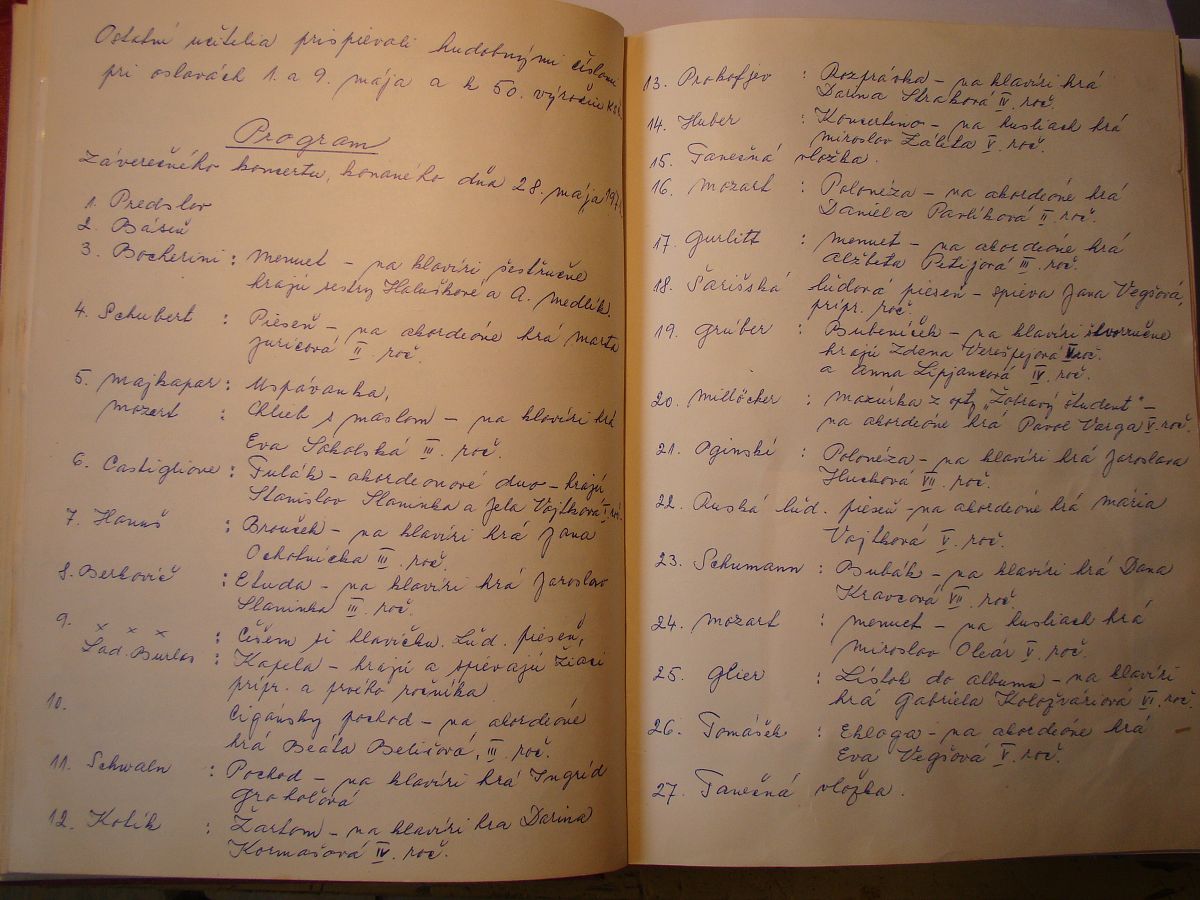 Ostatní učitelia prispievali hudobnými číslami
pri oslavách 1. a 9. mája a k 50. výročiu KSČ.
Program
Záverečného koncertu, konaného dňa 28. mája
1. Predslov
2. Báseň
3. Bocherini : Menuet – na klavíri šesťručne
hrajú sestry Haluškové a A. Medlík.
4. Schubert : Pieseň – na akordeóne hrá Marta
Juricová II. roč.
5. Majkapar : Uspávanka,
Mozart : Chlieb s maslom – na klavíri hrá
Eva Sokolská III. roč.
6. Castiglione : Fulák – akordeonové duo – hrajú
Stanislav Slaninka a Jela Vojtková
7. Hanuš : Brouček – na klavíri hrá Jana
Ochotnícka III. roč.
8. Berkovič : Etuda – na klavíri hrá Jaroslav
Slaninka III. roč.
9. x x x : Čišem si hlavičku. Ľud. pieseň,
Lad. Burlas : Kapela – hrajú a spievajú žiaci
prípr. a prvého ročníka
10. Cigánsky pochod – na akordeóne
hrá Beáta Belišová, III. roč.
11. Schwaln : Pochod – na klavíri hrá Ingrid
Groholová
12. Kolik : Žartom – na klavíri hra Darina
Kormašová IV. roč.
13. Prokofjev : Rozprávka – na klavíri hrá
Darina Straková IV. roč.
14. Huber : Koncertino – na husliach hrá
Miroslav Záleta V. roč.
15. Tanečná vložka.
16. Mozart : Polonéza – na akordeóne hrá
Daniela Pavlíková II. roč.
17. Gurlitt : Menuet – na akordeóne hrá
Alžbeta Petijová III. roč.
18. Šarišská ľudová pieseň – spieva Jana Vegšová,
prípr. roč.
19. Grúber : Bubeníček – na klavíri štvorručne
hrajú Zdena Verešpejová roč.
a Anna Lipjancová IV. roč.
20. Millöcker : Mazúrka z opty „Žobravý študent" –
na akordeóne hrá Pavol Varga V. roč.
21. Oginski : Polonéza – na klavíri hrá Jaroslava
Hucková VII. roč.
22. Ruská ľud. pieseň – na akordeone hrá Mária
Vojtková V. roč.
23. Schumann : Bubák – na klavíri hrá Dana
Kravcová VII. roč.
24. Mozart : Menuet – na husliach hrá
Miroslav Oleár V. roč.
25. Glier : Lístok do albumu – na klavíri
hrá Gabriela Koložváriová VI. roč.
26. Tomášek : Ekloga – na akordeóne hrá
Eva Vegšová V. roč.
27. Tanečná vložka.